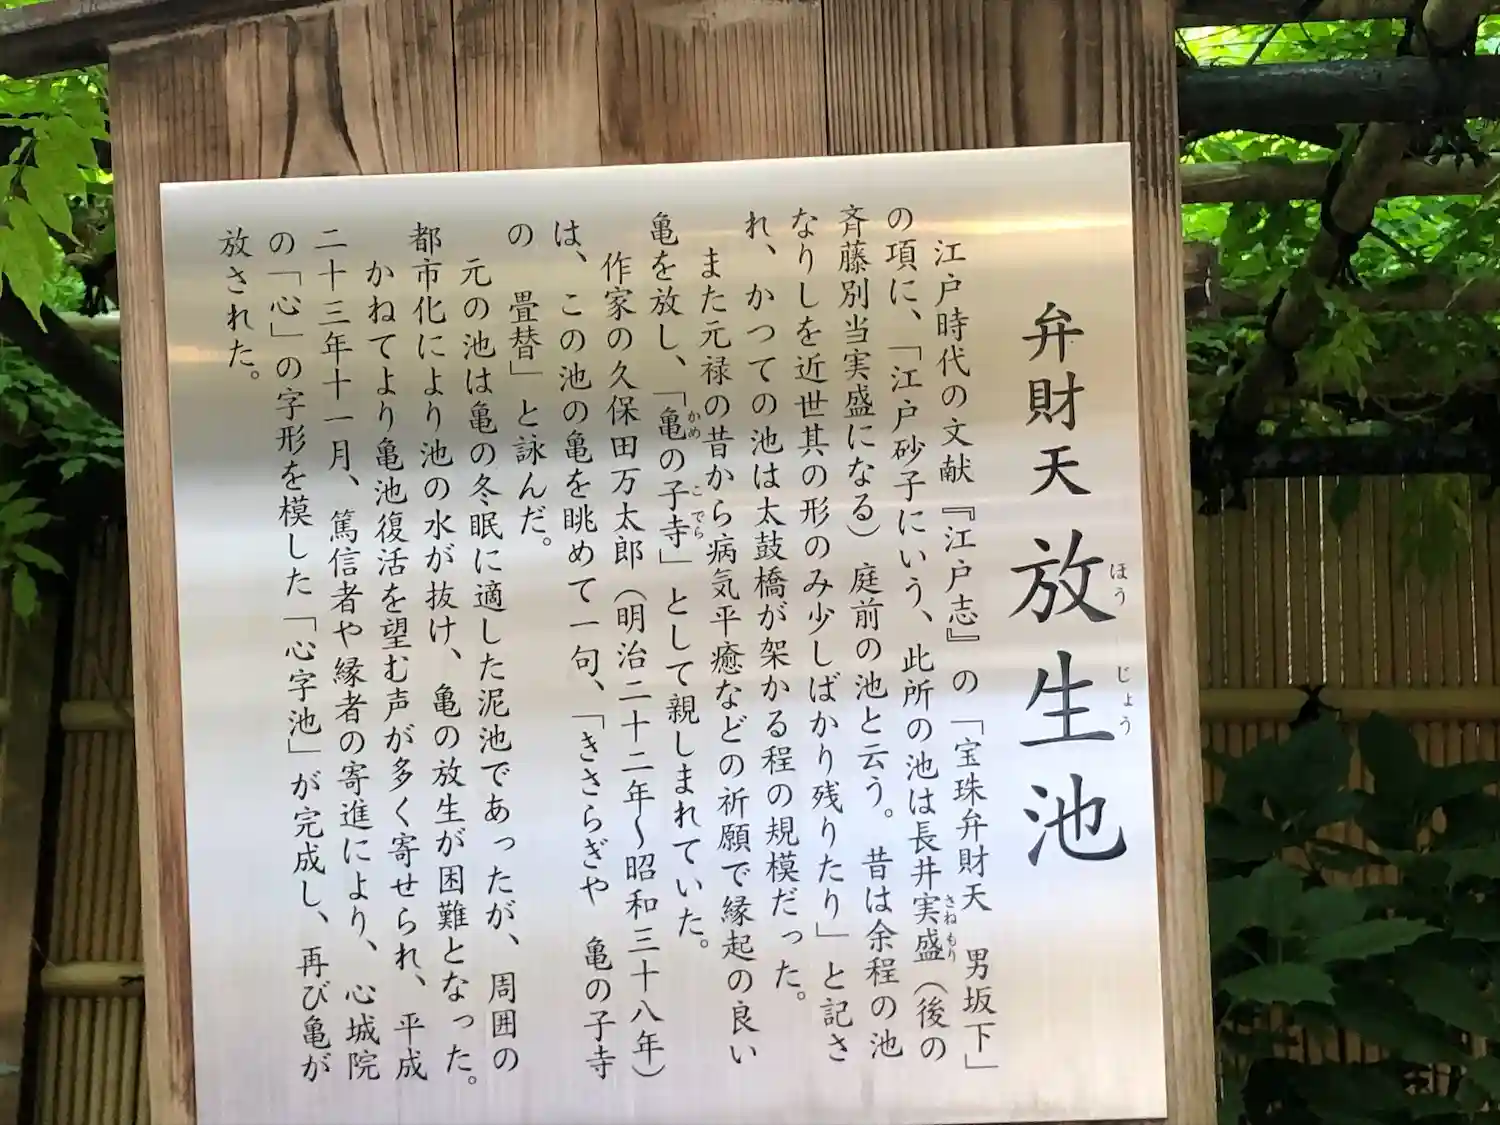 弁財天 放生池
ほう じょう
江戸時代の文献『江戸志』の「宝珠弁財天 男坂下」
の項に、「江戸砂子にいう、此所の池は長井実盛（後の
さねもり
斉藤別当実盛になる）庭前の池と云う。昔は余程の池
なりしを近世其の形のみ少しばかり残りたり」と記さ
れ、かつての池は太鼓橋が架かる程の規模だった。
また元禄の昔から病気平癒などの祈願で縁起の良い
亀を放し、「亀の子寺」として親しまれていた。
かめ こでら
作家の久保田万太郎（明治二十二年～昭和三十八年）
は、この池の亀を眺めて一句、「きさらぎや 亀の子寺
の 畳替」と詠んだ。
元の池は亀の冬眠に適した泥池であったが、周囲の
都市化により池の水が抜け、亀の放生が困難となった。
かねてより亀池復活を望む声が多く寄せられ、平成
二十三年十一月、篤信者や縁者の寄進により、心城院
の「心」の字形を模した「心字池」が完成し、再び亀が
放された。